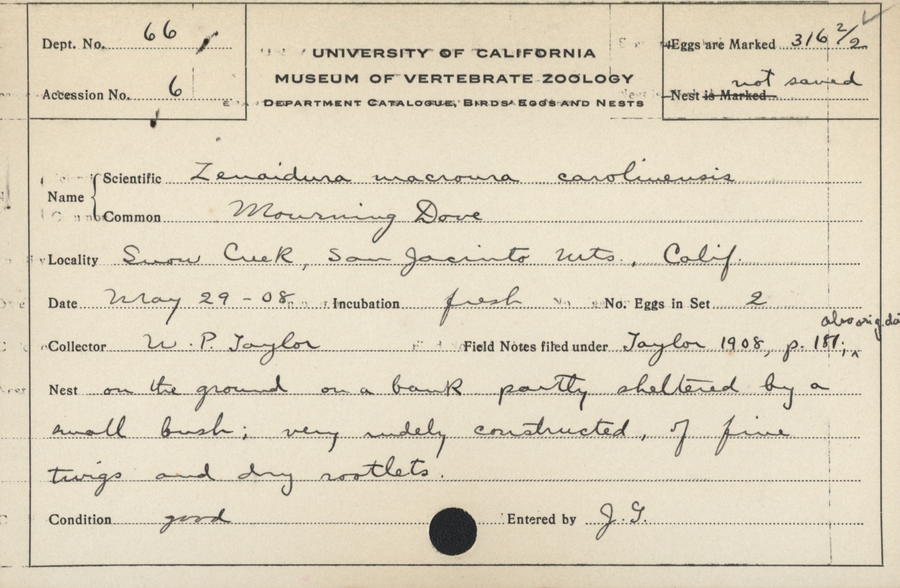 Dept. No. 66
Accession No. 6
UNIVERSITY OF CALIFORNIA
MUSEUM OF VERTEBRATE ZOOLOGY
DEPARTMENT CATALOGUE, BIRDS' EGGS AND NESTS
Eggs are Marked 316 2/2
not saved
Nest is Marked
Name
Scientific Zenaidura macroura carolinensis
Common Mourning Dove
Locality Snow Creek, San Jacinto Mts., Calif.
Date May 29-08 Incubation fresh No. Eggs in Set 2
also orig. da
Collector W. P. Taylor Field Notes filed under Taylor 1908, p. 187;
Nest on the ground on a bank partly sheltered by a
small bush; very rudely constructed, of fine
twigs and dry rootlets.
Condition good Entered by J. G.